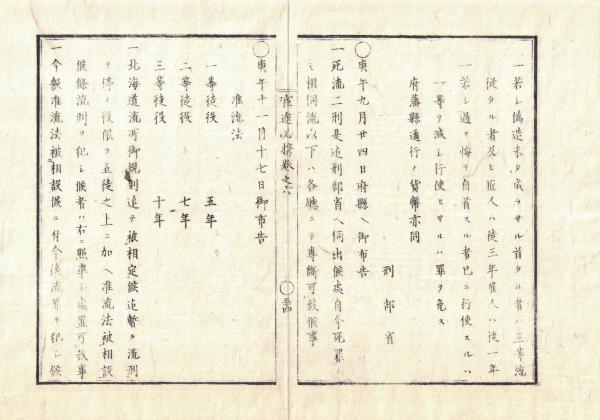 一若シ偽造未タ成ラサル首タル者ハ三等流
従タル者及ヒ匠人ハ徒三年雇人ハ徒一年
一若シ過ヲ悔ヲ自首スル者已ニ行使スルハ
一等ヲ減シ行使セサルハ罪ヲ免ス
府藩縣通行ノ貨幣亦同
刑部省
◯庚午九月廿四日府縣ヘ御布告
一死流二刑是迄刑部省ヘ伺出候處自今死罪ハ
相伺流以下ハ各聴ニテ專断可致候事
必携巻之六
◯庚午十一月十七日御布告
准流法
一等徒役 五年
二等徒役 七年
三等徒役 十年
一北海道流所御規則追テ被相定候迄暫ク流刑
ヲ停メ役限ヲ五徒之上ニ加ヘ准流法被相設
候條流刑ヲ犯シ候者ハ右ニ照準シ處置可致事
一今般准流法被相設候ニ付今後流罪ヲ犯シ候